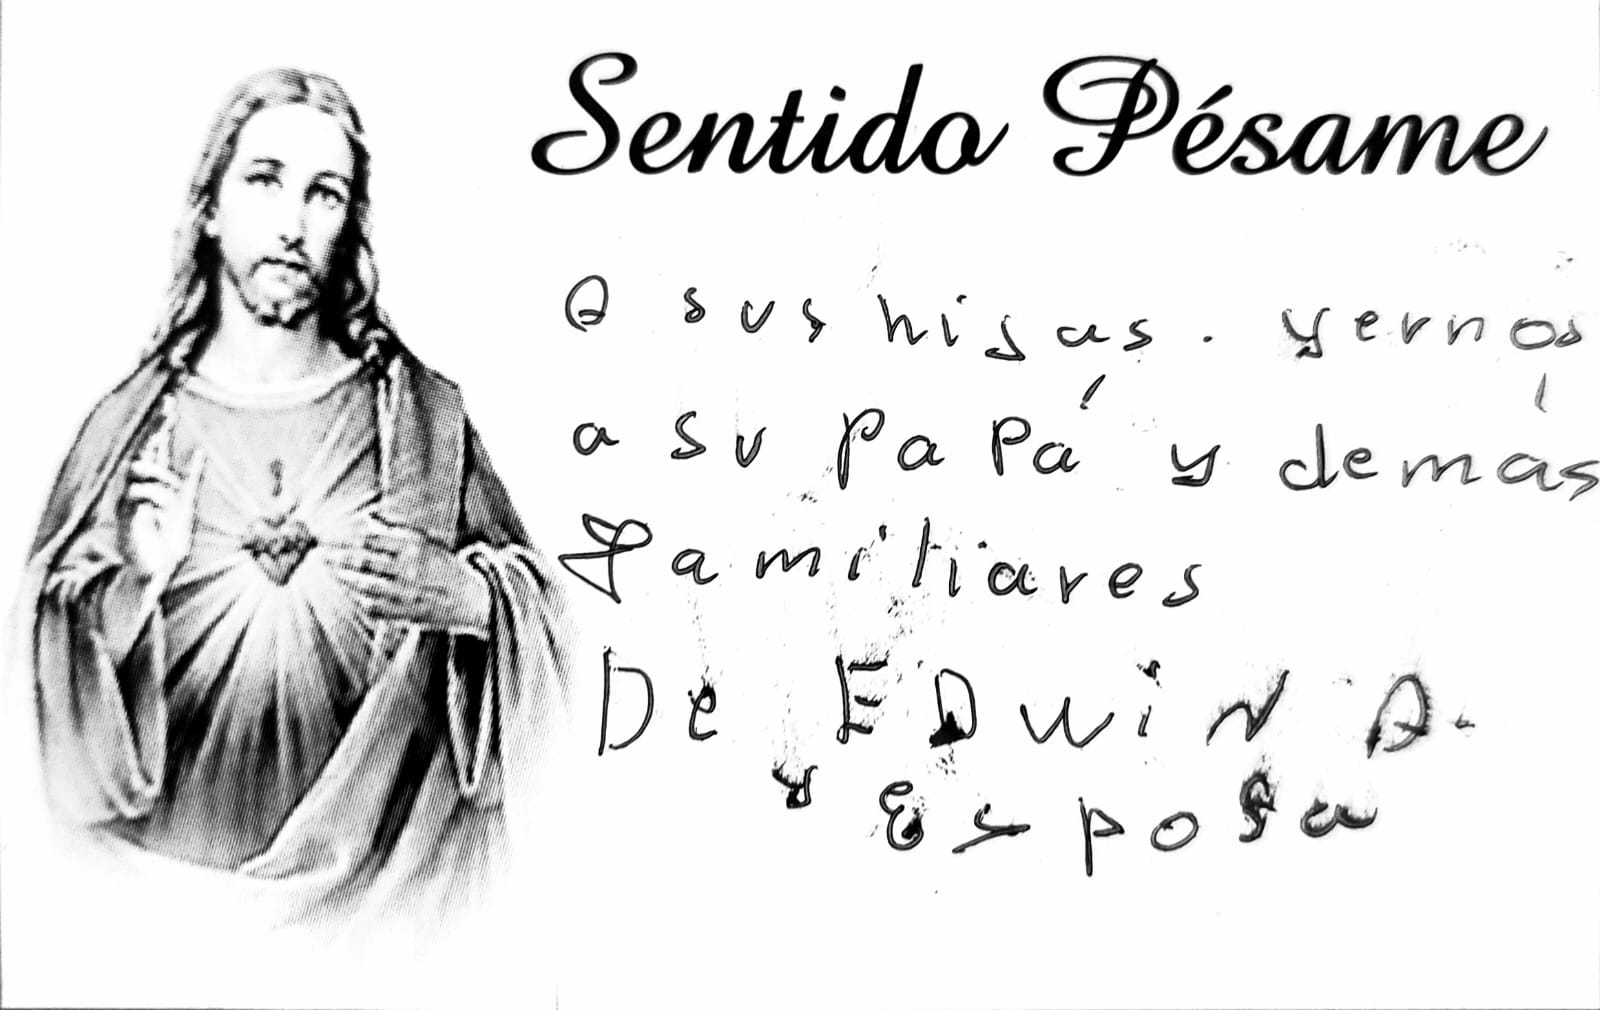 Sentido Pésame
A sus hijas. yernos
a su papá y demás
Familiares
De EDWIN A.
y Esposa